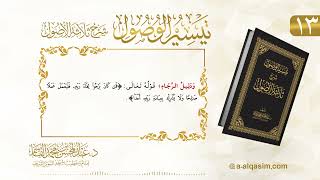 ١٣
تيسير الوصول شرح ثلاثة الأصول
وَدَلِيلُ الرَّجَاءِ: قَوْلُهُ تَعَالَى: ﴿فَمَن كَانَ يَرْجُوا لِقَاءَ رَبِّهِ فَلْيَعْمَلْ عَمَلًا
صَالِحًا وَلَا يُشْرِكْ بِعِبَادَةِ رَبِّهِ أَحَدًا﴾.
تيسير الوصول
شرح
ثلاثة الأصول
د. عبدالمحسن بن محمد القاسم
a-alqasim.com